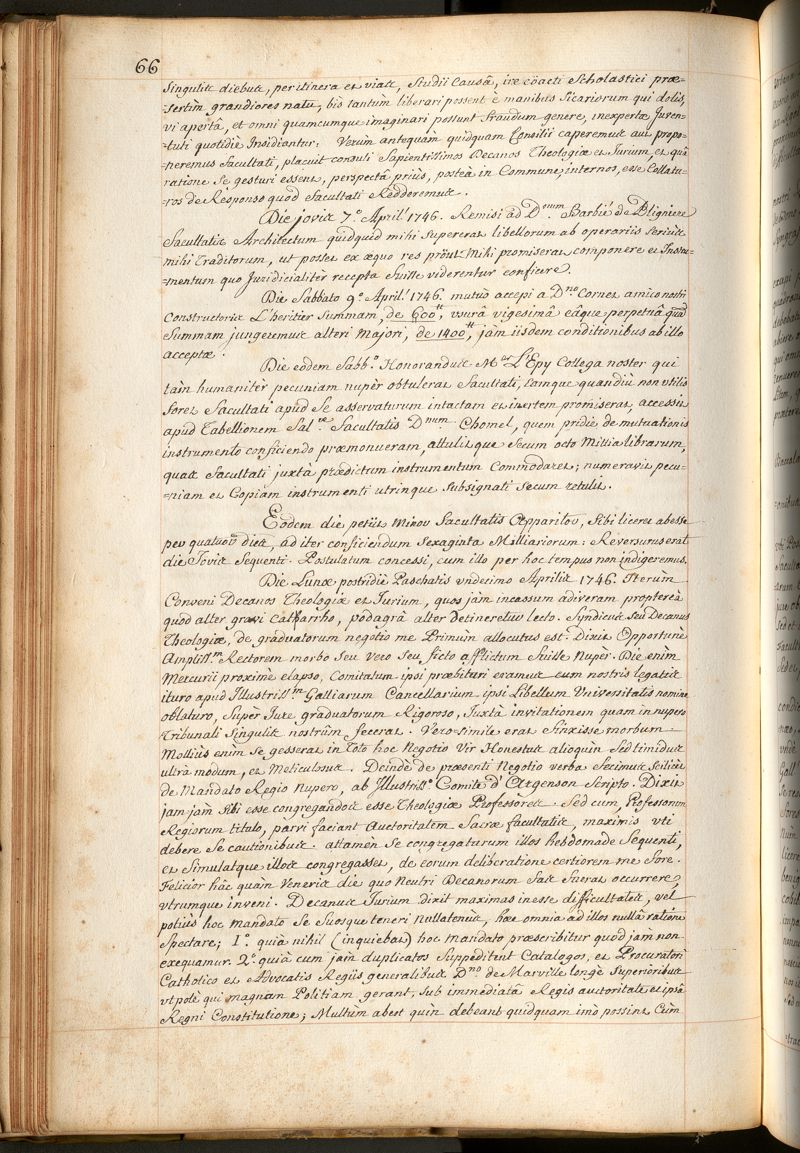 66
singulis diebus, per itinera et vias, Studii Causâ, ire coacti Scholastici præ=
=sertim grandiores natu, bis tantùm liberari possent è manibus Sicariorum qui dolis,
vi apertâ, et omni quamcumque imaginari possunt fraudum genere, inexpertæ Juven=
=tuti quotidiè Insidiantur: Verùm antequam quidquam Consilii caperemus aut propo=
=neremus facultati, placuit consuli Sapientissimos Decanos Theologiæ et Jurium, et quâ
ratione se gesturi essent, perspectâ priùs, posteà in Commune internos, esse Collatu=
=ros de Responso quod facultati Redderemus.
Die jovis 7.° April. 1746. Remisi ad D.num Barbié de Bligniere
facultatis Architectum quidquid mihi supererat libellorum ab operariis seriùs
mihi Traditorum, ut posset ex æquo res prout mihi promiserat componere et Instru=
=mentum quo Juridicialitèr recepta fuisse viderentur conficere.
Die Sabbato 9.° April. 1746. mutuò accepi a D.no Cornet amico nostri
Constructoris L'heritier Summam, de 600tt, usurâ vigesimâ eâque perpetuâ quā
Summam jungeremus alteri majori, de 1400tt, jàm iisdem conditionibus ab illo
acceptæ.
Die eodem Sabb.° Honorandus M.er L'Epy Collega noster qui
tàm humanitèr pecuniam nupèr obtulerat facultati, eamque quandiù non utilis
foret facultati apùd se asservaturum intactam et inertem promiserat, accessit
apùd Tabellionem Sal.rę facultatis D.num Chomel, quem pridiè de mutuationis
instrumento conficiendo præmonueram, attulitque secum octo Millia librarum,
quas facultati juxtà prædictum instrumentum Commodaret; numeravit pecu=
=niam et Copiam instrumenti utrinque subsignati secum retulit.
Eodem die petiit Minor facultatis Apparitor, sibi liceret abesse
per quatuor dies, ad iter conficiendum sexaginta Milliariorum: Reversurus erat
die Jovis sequenti. Postulatum concessi, cum illo per hoc tempus non indigeremus.
Die Lunæ postridiè Paschatis undecimo Aprilis 1746. Iterùm
Conveni Decanos Theologiæ et Jurium, quos jàm incassum adiveram proptereà
quòd alter gravi catharrho, podagrâ alter detineretur lecto. Syndicus seu Decanus
Theologiæ, de graduatorum negotio me Primùm allocutus est. Dixit Opportunè
Ampliss.m Rectorem morbo seu vero seu ficto afflictum fuisse Nupèr. Die enim
Mercurii proximè elapso, Comitatum ipsi præbituri eramus cum nostris legatis
ituro apud Illustriss.m Galliarum Cancellarium ipsi Libellum Universitatis nomine
oblaturo, supèr Jure graduatorum Rigoroso, Juxtà invitationem quam in nupero
Tribunali singulis nostrûm fecerat. Vero-simile erat finxisse morbum.
Molliùs enim se gesserat in Toto hoc Negotio Vir Honestus alioquin sed timidus
ultrà modum, et Meticulosus. Deindè de præsenti Negotio verba fecimus scilicèt
de Mandato Regio Nupero, ab Illustriss.° Comite d'Argenson Scripto. Dixit
jam jàm sibi esse congregandos esse Theologiæ Professores. Sed cum, Professorum
Regiorum titulo, parvi faciant Auctoritatem Sacræ facultatis, maximis uti
debere se cautionibus. attamèn se congregaturum illos hebdomade sequenti,
et simulatque illos congregasset, de eorum deliberatione certiorem me fore.
Felicior hâc quàm Veneris die quo Neutri Decanorum fas fuerat occurrere,
utrumque inveni. Decanus Jurium dixit maximas inesse difficultates, vel
potiùs hoc mandato se suosque teneri nullatenùs, hæc omnia ad illos nullâ ratione
spectare; 1.° quià nihil (inquiebat) hoc mandato præscribitur quod jàm non
exequamur. 2.° quià cum jàm duplicatos suppeditent Catalogos, et Procuratori
Catholico et Advocatis Regiis generalibus D.no de Marville longè superioribus
ut potè qui magnam Politiam gerant, sub immediatâ Regis auctoritate et ipsâ
Regni Constitutione; Multùm abest quin debeant quidquam imò possint Cùm